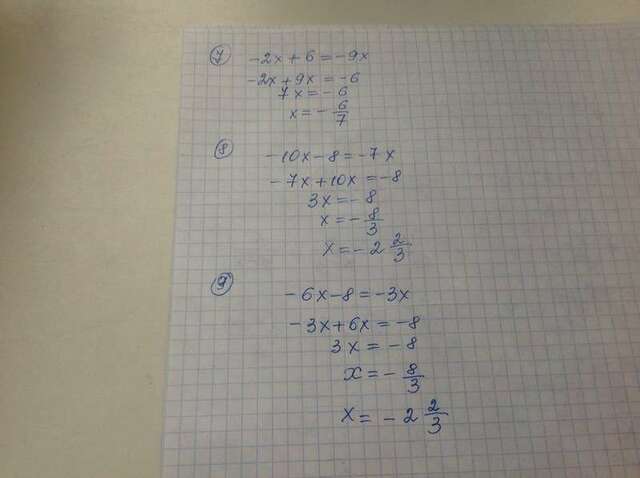 7
-2x + 6 = -9x
-2x + 9x = -6
7x = -6
x = - 6/7
8
-10x - 8 = -7x
-7x + 10x = -8
3x = -8
x = - 8/3
x = - 2 2/3
9
-6x - 8 = -3x
-3x + 6x = -8
3x = -8
x = - 8/3
x = - 2 2/3